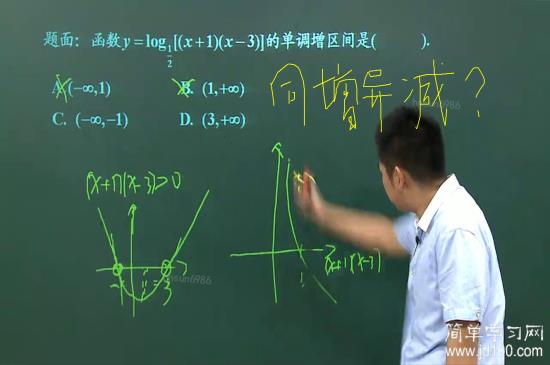 题面：函数y=log_{1/2}[(x+1)(x-3)]的单调增区间是(  ).
A. (-∞,1) B. (1,+∞)
C. (-∞,-1) D. (3,+∞)
同增异减？
(x+1)(x-3)>0
(x+1)(x-3)
-1 1 3
1
hsun6986
简单学习网
www.jd100.com